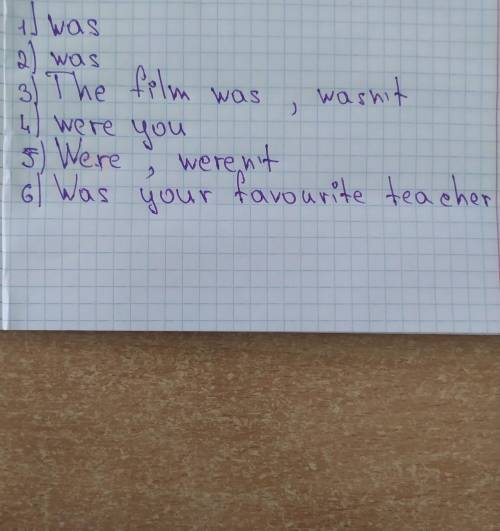 1) was
2) was
3) The film was, wasnit
4) were you
5) Were, werenit
6) Was your favourite teacher